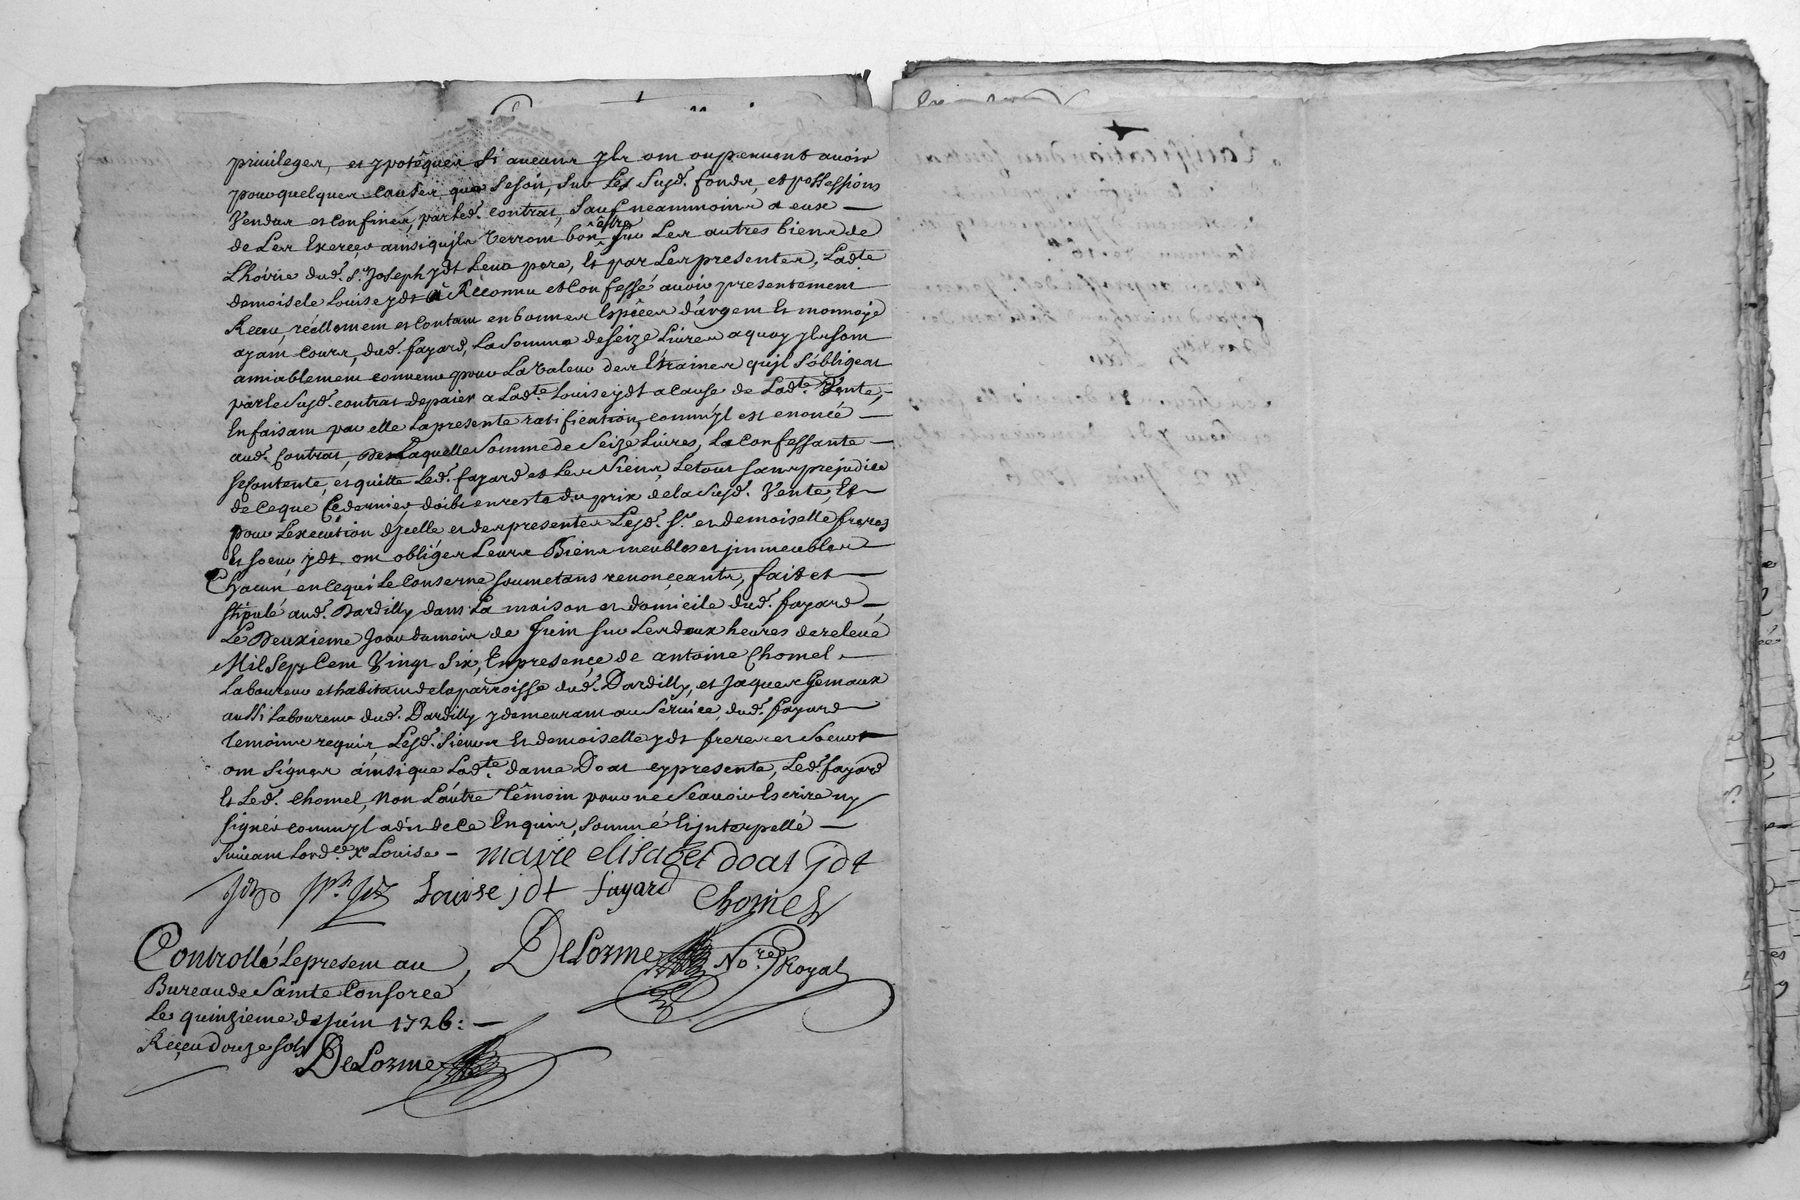 privileges, et ypotêques si aucuns yls ont ou peuvent avoir
pour quelques causes que se soit, sur les susd. fonds, et possessions
Vendus et confinés, par led. contrat, sauf neammoins a eux —
de Les Exerçer ainsi qu'jls verront bon être sur Les autres biens de
L'hoirie dud. Sr. Joseph ydt Leur pere, Et par Les presentes, Ladte
demoiselle Louise ydt a Reconnu et Confessé avoir presentement
Reçeu, réellement et contant en bonnes Espêces d'argent Et monnoye
ayant cours, dud. fayard, La somme de seize Livres a quoy yls sont
amiablement convenu pour La valeur des Etraines qu'jl s'obligeat
par le susd. contrat de paier a Ladte Louise ydt a cause de Ladte Vente,
En faisant par elle La presente ratification, comm'yl est enoncé —
aud. Contrat, De Laquelle somme de Seize Livres, La Confessante —
se contente, et quitte Led. fayard et Les siens, Le tout sans prejudice
de ce que Ce dernier doibt en reste du prix de la susd. Vente, Et
pour L'execution d'jcelle et des presentes Lesd. Sr. et demoiselle freres
Et soeur ydt. ont obliges Leurs Biens meubles et jmmeubles
Chacun, en ce qui Le conserne soumetans renonçeants, fait et
stipulé aud. Dardilly dans La maison et domicile dud. fayard —
Le Deuxieme Jour du mois de Juin sur Les deux heures de relevé
Mil Sept Cent Vingt Six, En presençe de antoine Chomel —
Laboureur et habitant de la parroisse dud. Dardilly, et Jaques Gemaux
aussi Laboureur dud. Dardilly y demeurant au Service dud. fayard
Temoins requis, Lesd. Sieurs Et demoiselle ydt freres et Soeur
ont signes ainsi que Ladte. dame Doat cy presente, Led. fayard
Et Led. Chomel, non L'autre Têmoin pour ne Scavoir Escrire ny
signer comm'yl a dit de ce Enquis, sommé Et jnterpellé —
Suivant Lord.ce X Louise — marie elisabet doat jdt
Louise jdt fayard
Chomel
DeLorme No.re Royal
Controllé Le present au
Bureau de Sainte Consorce
Le quinzieme de Juin 1726: —
Reçeu douze sols
DeLorme